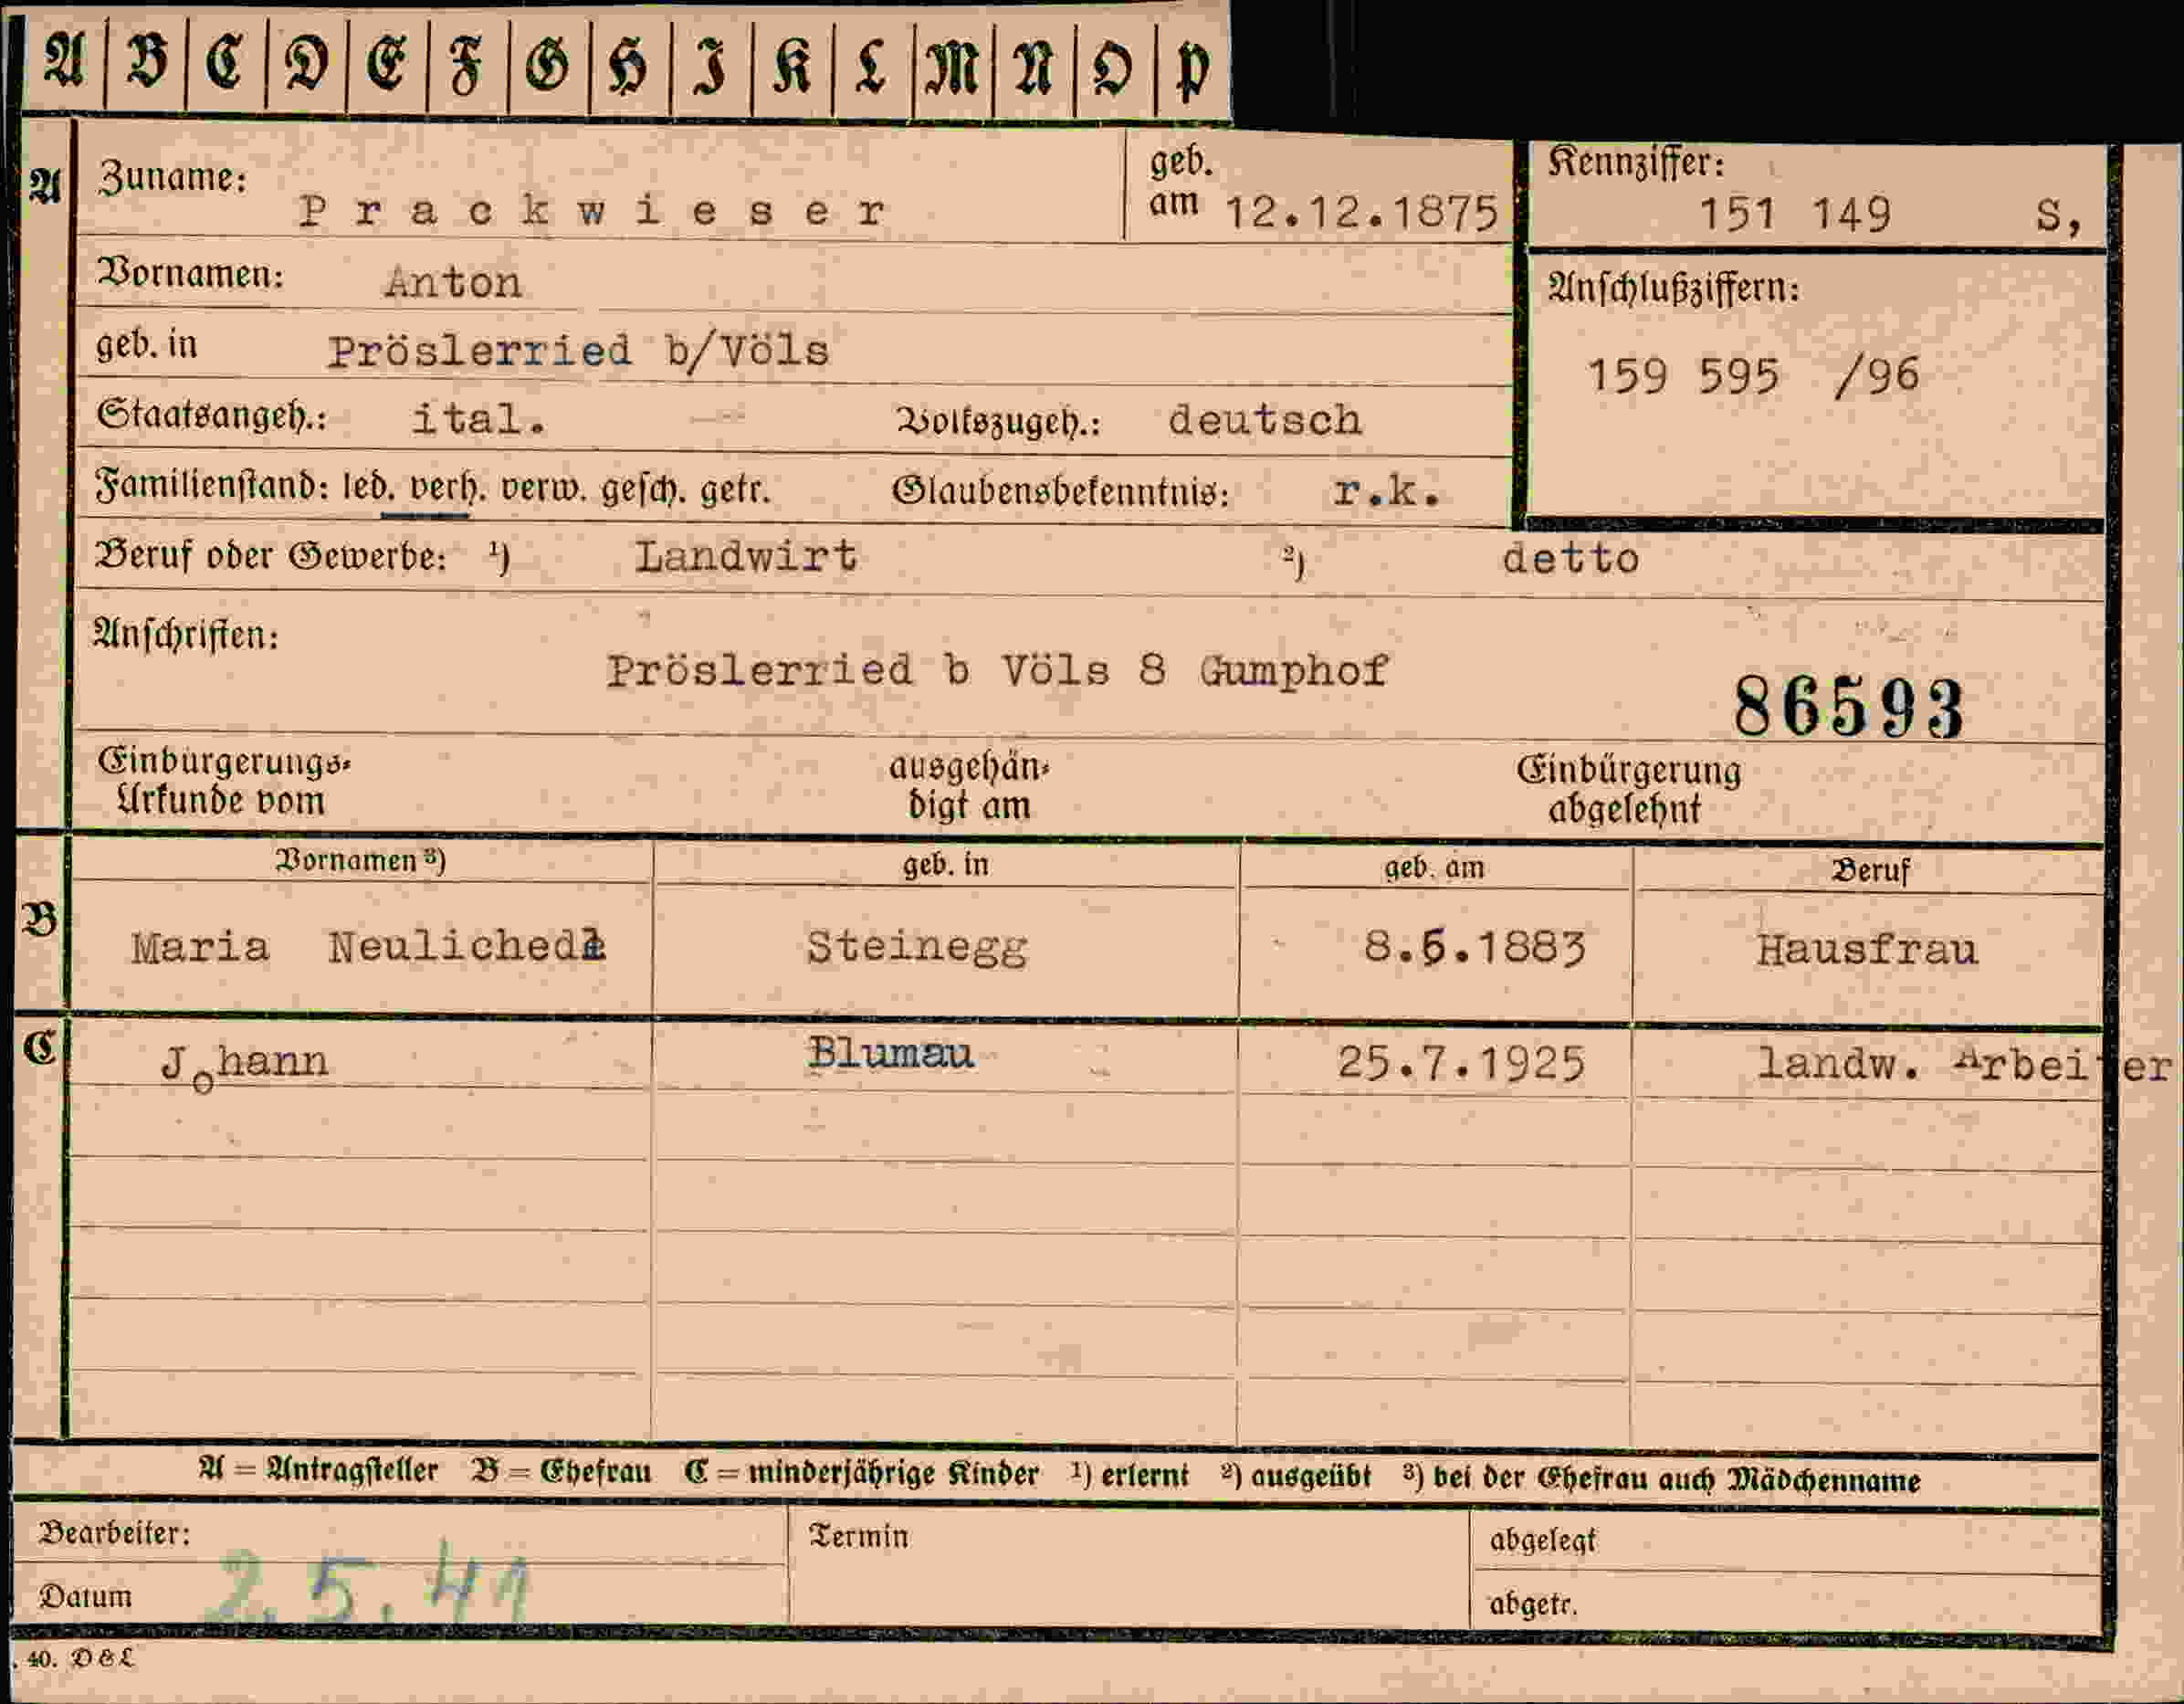 A B C D E F G H I K L M N O P
A Zuname: Prackwieser geb. am 12.12.1875 Kennziffer: 151 149 S,
Vornamen: Anton Anschlußziffern:
geb. in Pröslerried b/Völs 159 595 /96
Staatsangeh.: ital. Volkszugeh.: deutsch
Familienstand: led. verh. verw. gesch. getr. Glaubensbekenntnis: r.k.
Beruf oder Gewerbe: ¹) Landwirt ²) detto
Anschriften:
Pröslerried b Völs 8 Gumphof 86593
Einbürgerungs- ausgehän- Einbürgerung
Urkunde vom digt am abgelehnt
Vornamen ³) geb. in geb. am Beruf
B Maria Steinegg 8.6.1883 Hausfrau
C Johann Blumau 25.7.1925 landw. Arbeiter
A = Antragsteller B = Ehefrau C = minderjährige Kinder ¹) erlernt ²) ausgeübt ³) bei der Ehefrau auch Mädchenname
Bearbeiter: Termin abgelegt
Datum 2.5.41 abgetr.
40. D & L